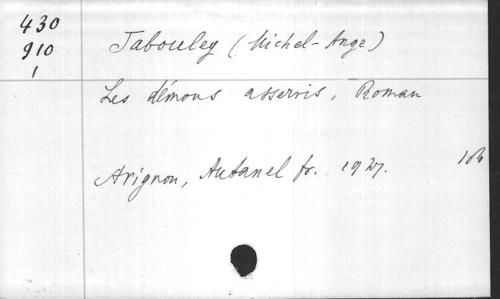 430
910
1
Jabouley (Michel-Ange)
Les démons asservis, Roman
Avignon, Aubanel fr. 1927.